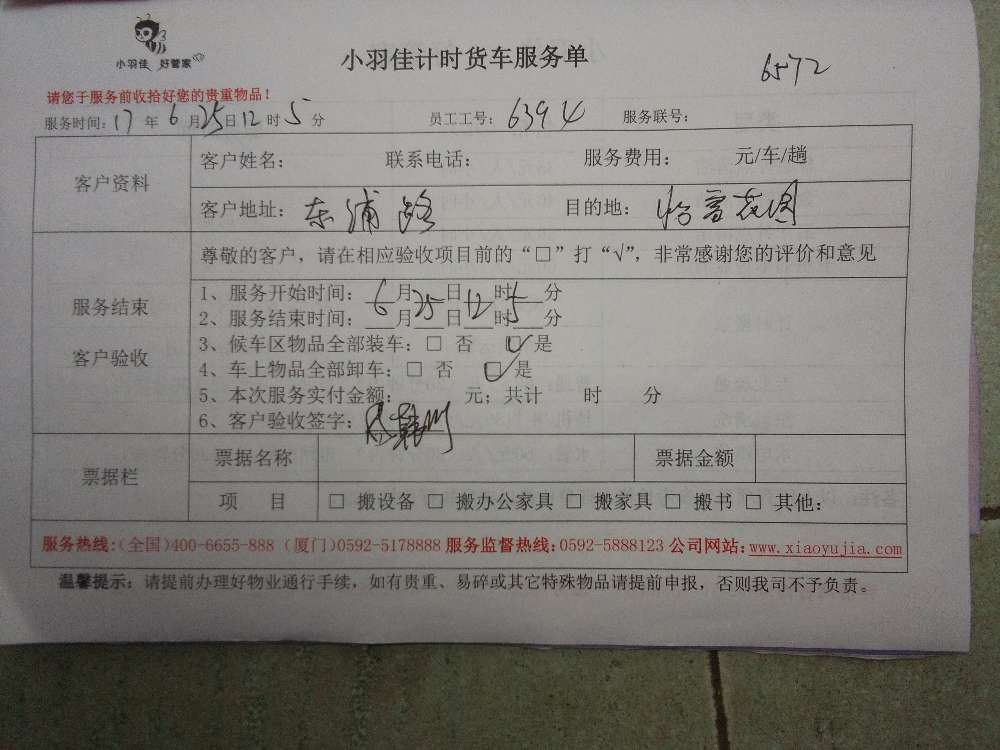 小羽佳 好管家
小羽佳计时货车服务单
6572
请您于服务前收拾好您的贵重物品！
服务时间：17 年 6 月 25 日 12 时 5 分 员工工号：6394 服务联号：
客户资料
客户姓名： 联系电话： 服务费用： 元/车/趟
客户地址：东浦路 目的地：怡富花园
服务结束
客户验收
尊敬的客户，请在相应验收项目前的“□”打“√”，非常感谢您的评价和意见
1、服务开始时间：6月25日12时5分
2、服务结束时间：___月___日___时___分
3、候车区物品全部装车：□ 否 ☑ 是
4、车上物品全部卸车：□ 否 ☑ 是
5、本次服务实付金额： 元；共计 时 分
6、客户验收签字：
票据栏
票据名称 票据金额
项 目 □ 搬设备 □ 搬办公家具 □ 搬家具 □ 搬书 □ 其他：
服务热线：（全国）400-6655-888（厦门）0592-5178888 服务监督热线：0592-5888123 公司网站：www.xiaoyujia.com
温馨提示：请提前办理好物业通行手续，如有贵重、易碎或其它特殊物品请提前申报，否则我司不予负责。